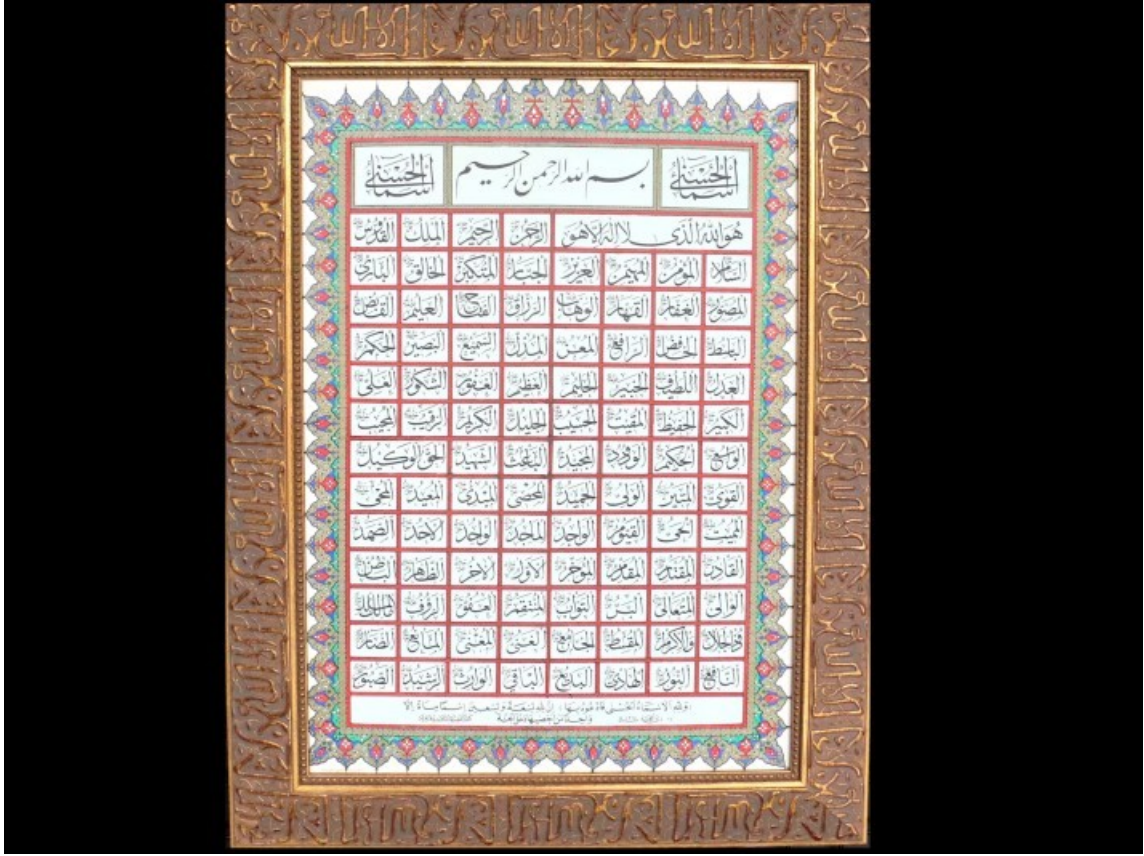 أسماء الحسنى بسم الله الرحمن الرحيم أسماء الحسنى
هو الله الذي لا إله إلا هو الرحمن الرحيم الملك القدوس
السلام المؤمن المهيمن العزيز الجبار المتكبر الخالق البارئ
المصور الغفار القهار الوهاب الرزاق الفتاح العليم القابض
الباسط الخافض الرافع المعز المذل السميع البصير الحكم
العدل اللطيف الخبير الحليم العظيم الغفور الشكور العلي
الكبير الحفيظ المقيت الحسيب الجليل الكريم الرقيب المجيب
الواسع الحكيم الودود المجيد الباعث الشهيد الحق الوكيل
القوي المتين الولي الحميد المحصي المبدئ المعيد المحيي
المميت الحي القيوم الواجد الماجد الواحد الأحد الصمد
القادر المقتدر المقدم المؤخر الأول الآخر الظاهر الباطن
الوالي المتعالي البر التواب المنتقم العفو الرؤف مالك الملك
ذو الجلال والإكرام المقسط الجامع الغني المغني المانع الضار
النافع النور الهادي البديع الباقي الوارث الرشيد الصبور
ولله الأسماء الحسنى فادعوه بها إن لله تسعة وتسعين اسما مائة إلا